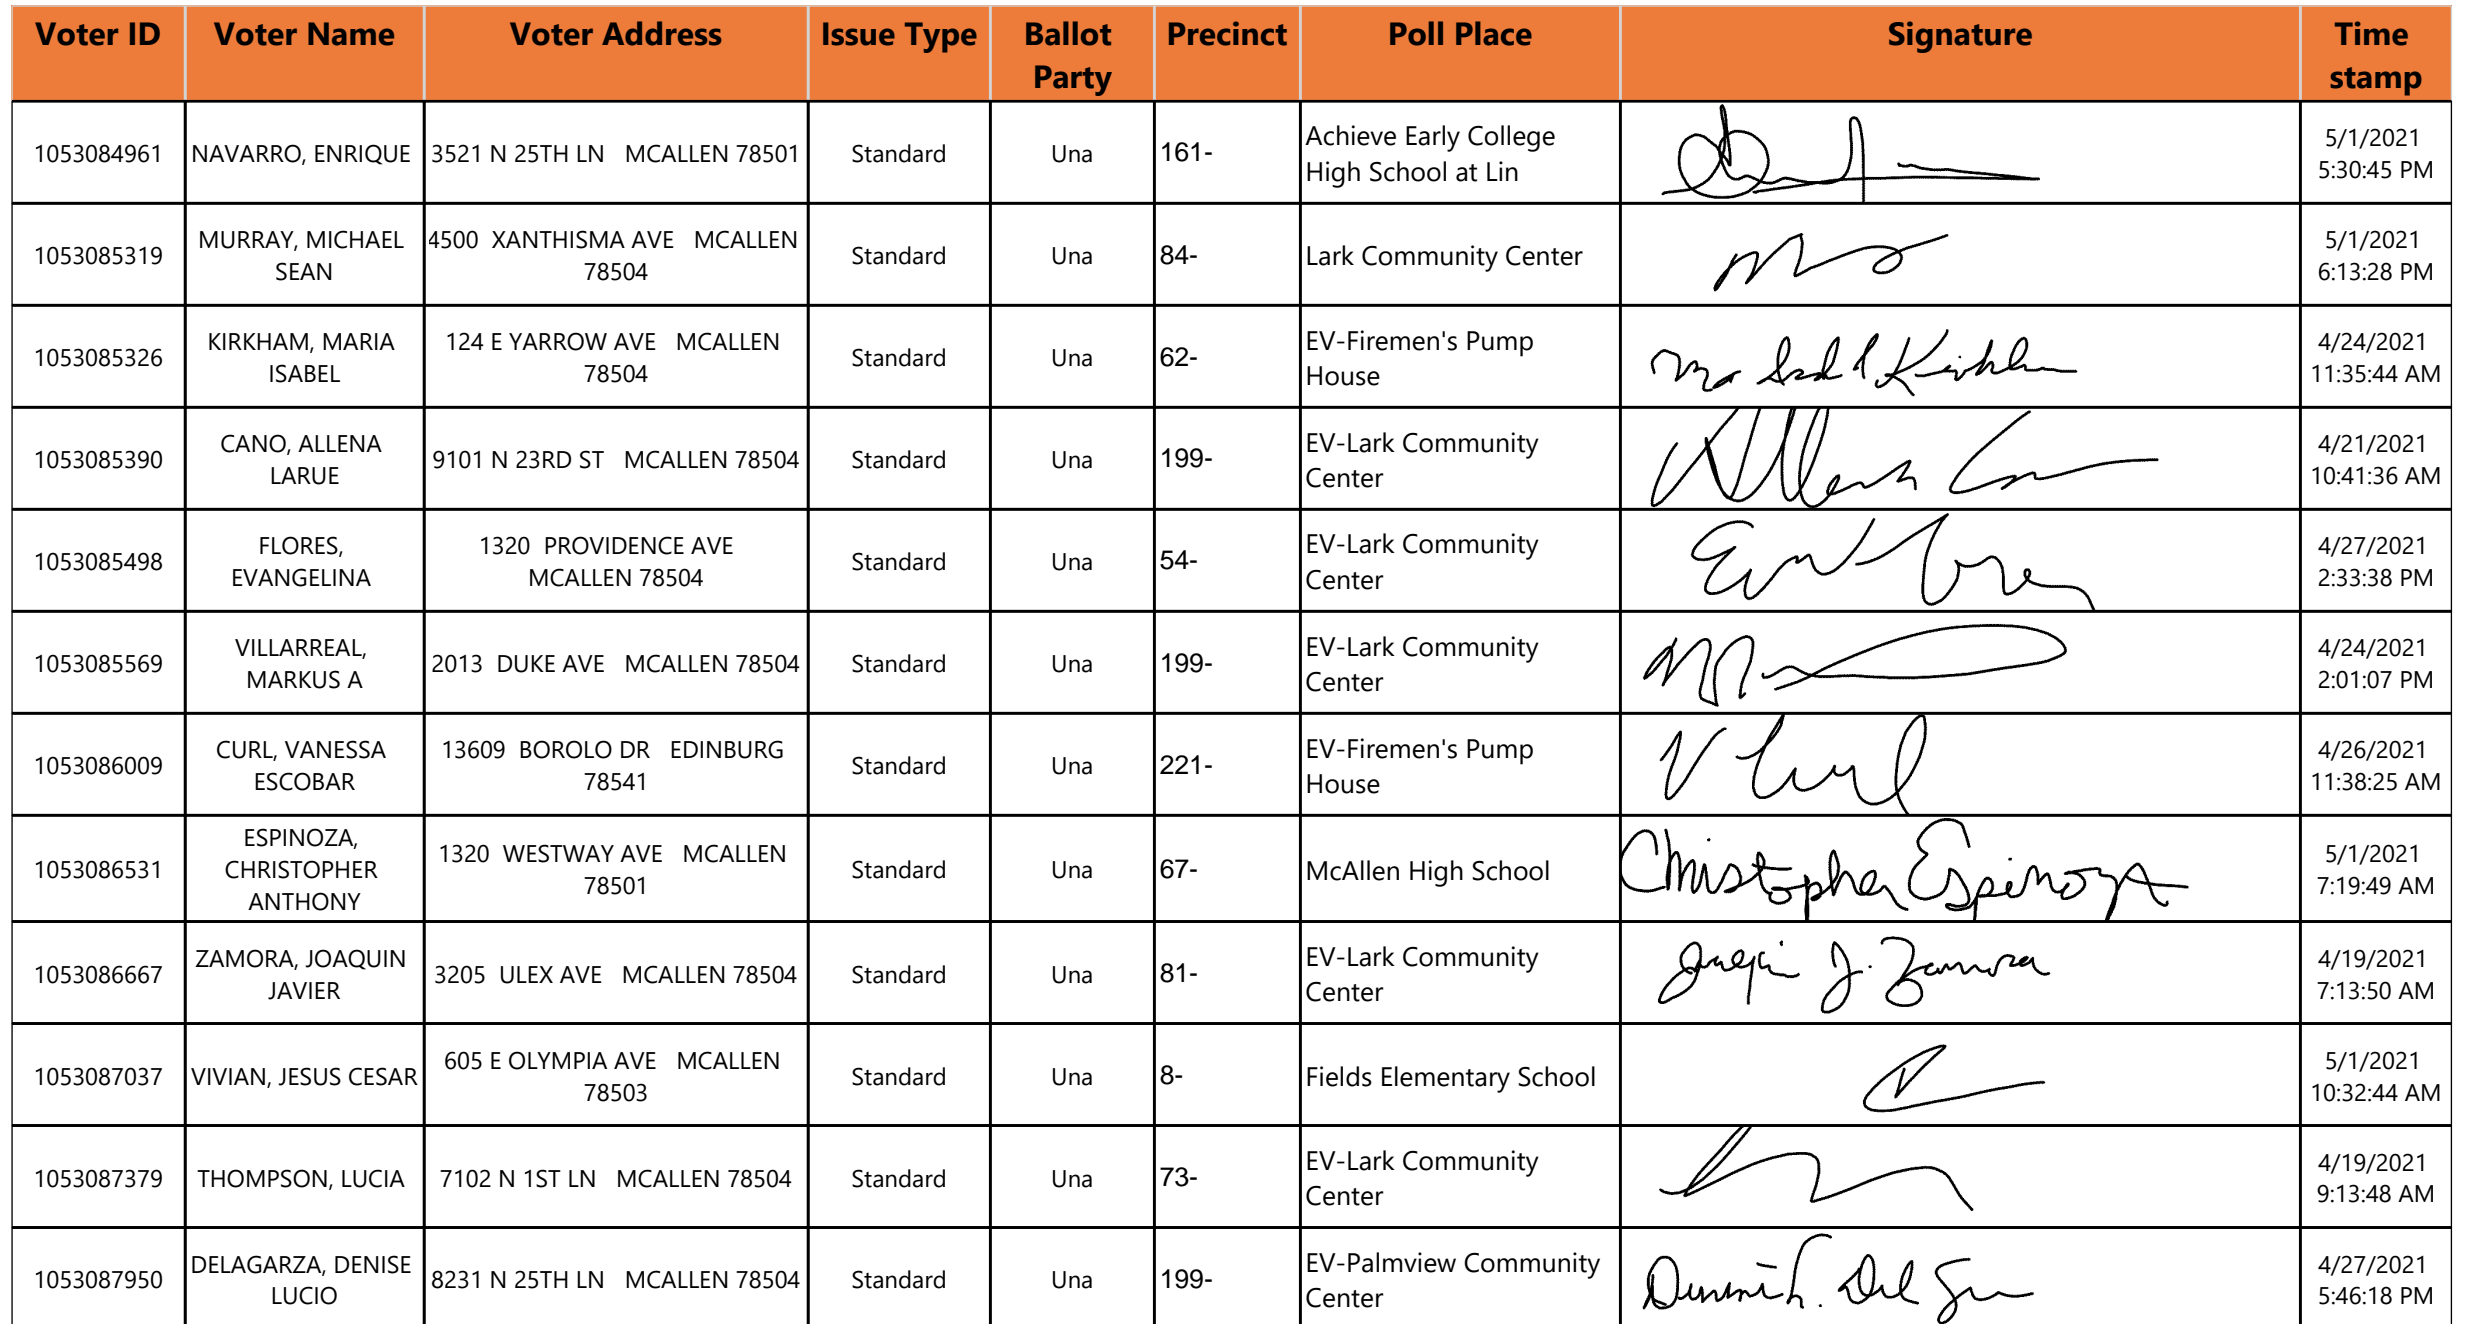 Voter ID Voter Name Voter Address Issue Type Ballot Party Precinct Poll Place Signature Time stamp
1053084961 NAVARRO, ENRIQUE 3521 N 25TH LN MCALLEN 78501 Standard Una 161- Achieve Early College High School at Lin 5/1/2021 5:30:45 PM
1053085319 MURRAY, MICHAEL SEAN 4500 XANTHISMA AVE MCALLEN 78504 Standard Una 84- Lark Community Center 5/1/2021 6:13:28 PM
1053085326 KIRKHAM, MARIA ISABEL 124 E YARROW AVE MCALLEN 78504 Standard Una 62- EV-Firemen's Pump House 4/24/2021 11:35:44 AM
1053085390 CANO, ALLENA LARUE 9101 N 23RD ST MCALLEN 78504 Standard Una 199- EV-Lark Community Center 4/21/2021 10:41:36 AM
1053085498 FLORES, EVANGELINA 1320 PROVIDENCE AVE MCALLEN 78504 Standard Una 54- EV-Lark Community Center 4/27/2021 2:33:38 PM
1053085569 VILLARREAL, MARKUS A 2013 DUKE AVE MCALLEN 78504 Standard Una 199- EV-Lark Community Center 4/24/2021 2:01:07 PM
1053086009 CURL, VANESSA ESCOBAR 13609 BOROLO DR EDINBURG 78541 Standard Una 221- EV-Firemen's Pump House V Curl 4/26/2021 11:38:25 AM
1053086531 ESPINOZA, CHRISTOPHER ANTHONY 1320 WESTWAY AVE MCALLEN 78501 Standard Una 67- McAllen High School Christopher Espinoza 5/1/2021 7:19:49 AM
1053086667 ZAMORA, JOAQUIN JAVIER 3205 ULEX AVE MCALLEN 78504 Standard Una 81- EV-Lark Community Center J. Zamora 4/19/2021 7:13:50 AM
1053087037 VIVIAN, JESUS CESAR 605 E OLYMPIA AVE MCALLEN 78503 Standard Una 8- Fields Elementary School 5/1/2021 10:32:44 AM
1053087379 THOMPSON, LUCIA 7102 N 1ST LN MCALLEN 78504 Standard Una 73- EV-Lark Community Center 4/19/2021 9:13:48 AM
1053087950 DELAGARZA, DENISE LUCIO 8231 N 25TH LN MCALLEN 78504 Standard Una 199- EV-Palmview Community Center 4/27/2021 5:46:18 PM